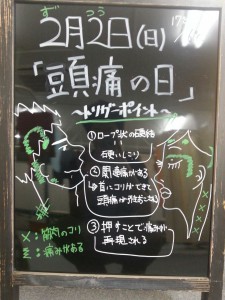 ず つう
2月2日(日)
「頭痛の日」
～トリガーポイント～
①ロープ状の硬結
硬いしこり
②関連痛がある
首にコリができて
頭痛が
③押すことで痛みが
再現される
×:筋肉のコリ
:痛みがある